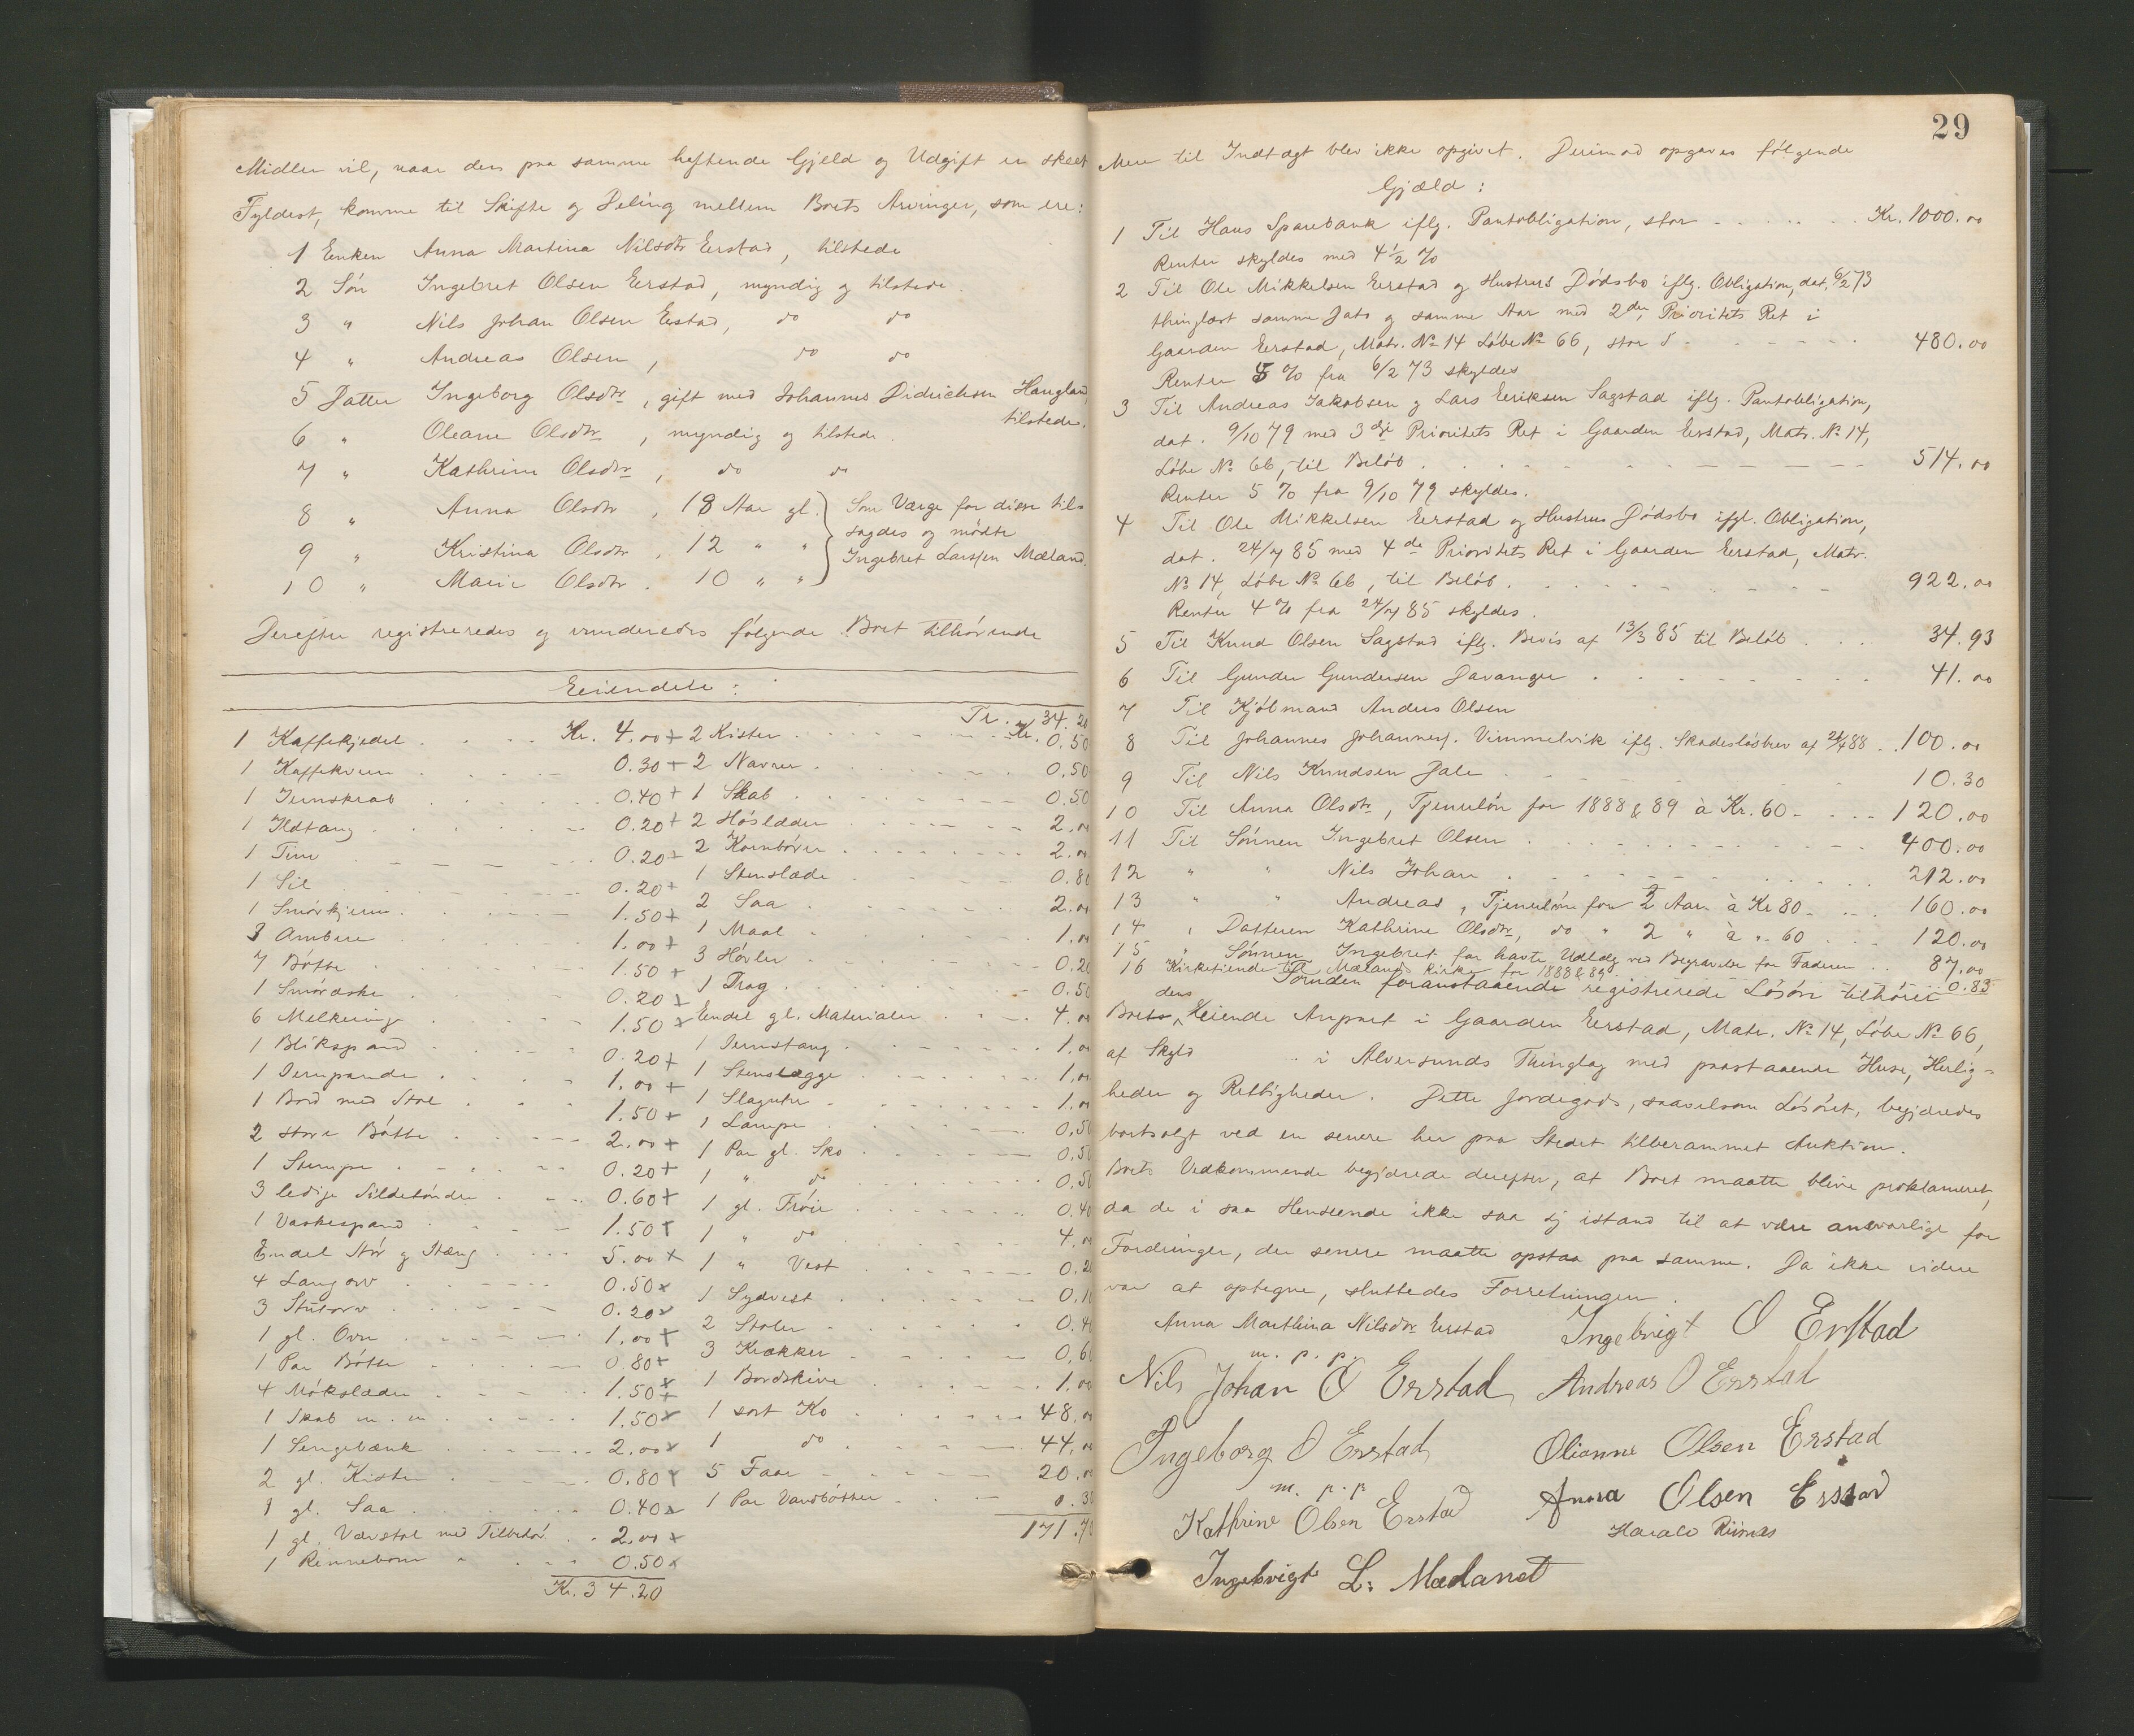 Midler vil, naar den paa samme heftende Gjeld og Udgift er skeet
Fyldest, komme til Skifte og Deling mellem Boets Arvinger, som ere:
1 Enken Anna Martina Nilsdtr Eerstad, tilstede
2 Søn Ingebret Olsen Eerstad, myndig og tilstede.
3 " Nils Johan Olsen Eerstad, do do
4 " Andreas Olsen, do do
5 Datter Ingeborg Olsdtr, gift med Johannes Didrichsen Haugland,
tilstede.
6 " Oleane Olsdtr, myndig og tilstede.
7 " Kathrine Olsdtr, do do
8 " Anna Olsdtr, 18 Aar gl. } Som Værge for disse til-
sagdes og mødte
9 " Kristina Olsdtr, 12 " "
Ingebret Larssen Mæland.
10 " Marie Olsdtr. 10 " "
Derefter registreredes og vurderedes følgende Boet tilhørende
Eeiendele:
1 Kaffekjedel Kr. 4.00 +
1 Kaffekvern 0.30 +
1 Jernskrab 0.40 +
1 Ildtang 0.20 +
1 Tine 0.20 +
1 Sil 0.20 +
1 Smørkjerne 1.50 +
3 Ambere 1.00 +
7 Bøtte 1.50 +
1 Smøræske 0.20 +
6 Melkeringe 1.50 +
1 Blikspand 0.20 +
1 Jernpande 1.00 +
1 Bord med Stol 1.50 +
2 store Bøtte 2.00 +
1 Stampe 0.20 +
3 ledige Sildetønder 0.60 +
1 Vaskespand 1.50 +
Endel Stør og Stæng 5.00 +
4 Langorv 0.50 x
3 Stutorv 0.20 x
1 gl. Ovn 1.00 +
1 Par Bøtte 0.80 +
4 Møkslæder 1.50 +
1 Skab m. m. 1.50 x
1 Sengebænk 2.00 x
2 gl. Kister 0.80 x
1 gl. Saa 0.40 x
1 gl. Vævstol med Tilbehør 2.00 x
1 Rennebom 0.50 x
Kr. 34.20
Tr. 34.20
2 Kister Kr. 0.50
2 Navrer 0.50
1 Skab 0.50
2 Høslæder 2.00
2 Kornbører 2.00
1 Stenslæde 0.80
2 Saa 2.00
1 Maal 1.00
3 Høvler 0.20
1 Trag 0.50
Eendel gl. Materialer 4.00
1 Jernstang 1.00
1 Stenslægge 1.00
1 Slaguhr 1.00
1 Lampe 0.50
1 Par gl. Sko 0.50
1 " do 0.50
1 gl. Trøie 0.40
1 " do 4.00
1 " Vest 0.20
1 Sydvest 0.10
2 Stoler 0.40
3 Krakker 0.60
1 Bordskive 1.00
1 sort Ko 48.00
1 do 44.00
5 Faar 20.00
1 Par Vandbøtter 0.30
171.70
29
Mere til Indtægt blev ikke opgivet. Derimod opgaves følgende
Gjæld:
1 Til Haus Sparebank iflg. Pantobligation, stor Kr. 1000.00
Renter skyldes med 4 1/2 %
2 Til Ole Mikkelsen Eerstad og Hustrus Dødsbo iflg. Obligation, dat. 6/2 73
thinglæst samme Dato og samme Aar med 2den Prioritets Ret i
Gaarden Eerstad, Matr. No 14 Løbe No 66, stor 480.00
Renter 5 % fra 6/2 73 skyldes
3 Til Andreas Jakobsen og Lars Eeriksen Sagstad iflg. Pantobligation,
dat. 9/10 79 med 3die Prioritets Ret i Gaarden Eerstad, Matr. No 14,
Løbe No 66, til Beløb 514.00
Renter 5 % fra 9/10 79 skyldes.
4 Til Ole Mikkelsen Eerstad og Hustrus Dødsbo ifgl. Obligation,
dat. 24/7 85 med 4de Prioritets Ret i Gaarden Eerstad, Matr.
No 14, Løbe No 66, til Beløb 922.00
Renter 4 % fra 24/7 85 skyldes.
5 Til Knud Olsen Sagstad iflg. Bevis af 13/3 85 til Beløb 34.93
6 Til Gunder Gundersen Davanger 41.00
7 Til Kjøbmand Anders Olsen
8 Til Johannes Johannes. Vimmelvik iflg. Skadesløsbrev af 24/4 88 100.00
9 Til Nils Knudsen Dale 10.30
10 Til Anna Olsdtr, Tjenerløn for 1888 & 89 à Kr. 60 120.00
11 Til Sønnen Ingebret Olsen 400.00
12 " " Nils Johan 212.00
13 " " Andreas, Tjenerløn for 2 Aar à Kr 80 160.00
14 " Datteren Kathrine Olsdtr, do " 2 " à " 60 120.00
15 " Sønnen Ingebret for havte Udlæg ved Begravelse for Faderen 87.00
16 Kirketiende til Mælands Kirke for 1888 & 89 0.83
Foruden foranstaaende registrerede Løsøre tilhører
Boets dens Eeiende Anpart i Gaarden Eerstad, Matr. No 14, Løbe No 66,
af Skyld i Alversunds Thinglag med paastaaende Huse, Herlig-
heder og Rettigheder. Dette Jordegods, saavelsom Løsøret, begjæredes
bortsolgt ved en senere her paa Stedet tilberammet Auktion.
Boets Vedkommende begjærede derefter, at Boet maatte blive proklameret,
da de i saa Henseende ikke saa sig istand til at være ansvarlige for
Fordringer, der senere maatte opstaa paa samme. Da ikke videre
var at optegne, sluttedes Forretningen.
Anna Marthina Nilsdtr Eerstad Ingebrigt O Erstad
m. p. p.
Nils Johan O Erstad, Andreas O Erstad
Ingeborg O Erstad, Olianne Olsen Erstad
m. p. p
Kathrine Olsen Erstad Anna Olsen Erstad
Harald Riisnæs
Ingebrigt L: Mædland